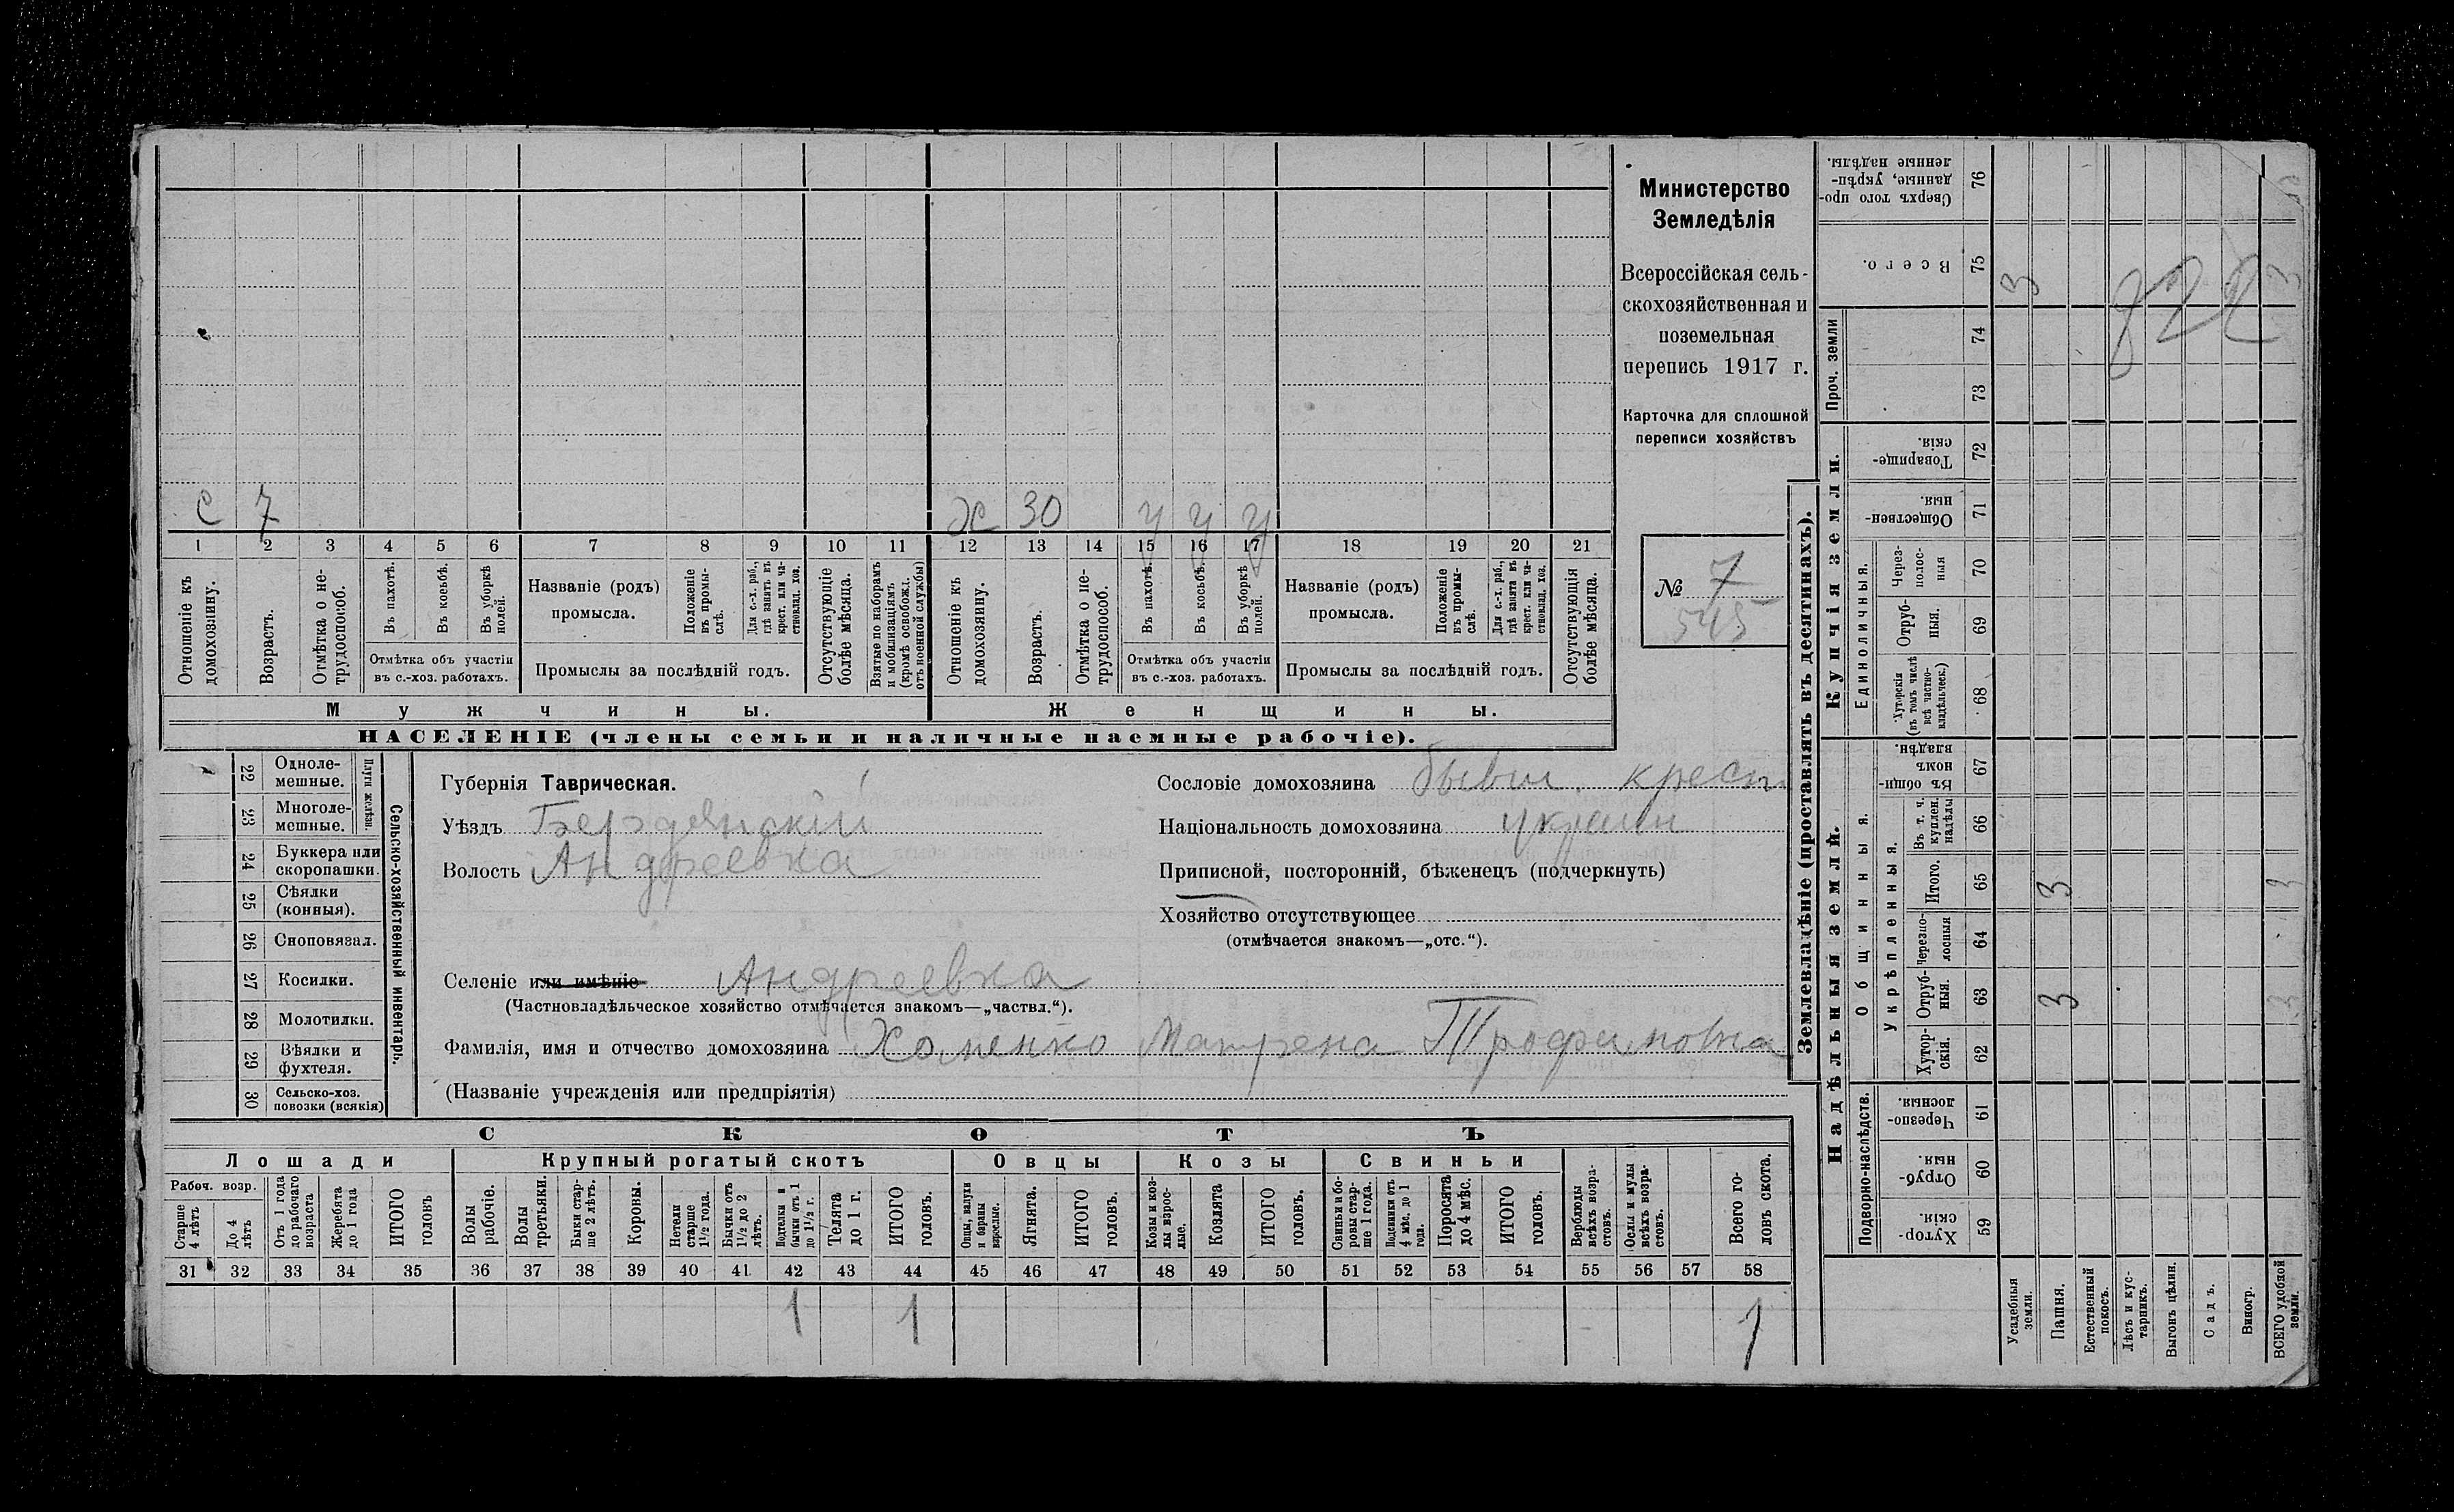 Министерство
Земледѣлія
Всероссійская сель-
скохозяйственная и
поземельная
перепись 1917 г.
Карточка для сплошной
переписи хозяйствъ
№ 7
545
с 7
ж 30 у у у
1 2 3 4 5 6 7 8 9 10 11 12 13 14 15 16 17 18 19 20 21
Отношеніе къ домохозяину.
Возрастъ.
Отмѣтка о не-
трудоспособ.
Въ пахотѣ.
Въ косьбѣ.
Въ уборкѣ
полей.
Отмѣтка объ участіи
въ с.-хоз. работахъ.
Названіе (родъ)
промысла.
Положеніе
въ промы-
слѣ.
Для с.-х. раб.,
гдѣ занятъ въ
крест. или ча-
стновлад. хоз.
Промыслы за послѣдній годъ.
Отсутствующіе
болѣе мѣсяца.
Взятые по наборамъ
и мобилизаціямъ
(кромѣ освобожд.
отъ военной службы)
Отношеніе къ
домохозяину.
Возрастъ.
Отмѣтка о не-
трудоспособ.
Въ пахотѣ.
Въ косьбѣ.
Въ уборкѣ
полей.
Отмѣтка объ участіи
въ с.-хоз. работахъ.
Названіе (родъ)
промысла.
Положеніе
въ промы-
слѣ.
Для с.-х. раб.,
гдѣ занята въ
крест. или ча-
стновлад. хоз.
Промыслы за послѣдній годъ.
Отсутствующія
болѣе мѣсяца.
Мужчины. Женщины.
НАСЕЛЕНІЕ (члены семьи и наличные наемные рабочіе).
22 Одноле-
мешные.
23 Многоле-
мешные.
Плуги желѣзн.
24 Буккера или
скоропашки.
25 Сѣялки
(конныя).
26 Сноповязал.
27 Косилки.
28 Молотилки.
29 Вѣялки и
фухтеля.
30 Сельско-хоз.
повозки (всякія)
Сельско-хозяйственный инвентарь.
Губернія Таврическая.
Уѣздъ Бердянскій
Волость Андреевка
Селеніе или имѣніе Андреевка
(Частновладѣльческое хозяйство отмѣчается знакомъ—„частвл.“).
Фамилія, имя и отчество домохозяина Хоменко Матрена Трофимовна
(Названіе учрежденія или предпріятія)
Сословіе домохозяина бывш. крест
Національность домохозяина украин
Приписной, посторонній, бѣженецъ (подчеркнуть)
Хозяйство отсутствующее
(отмѣчается знакомъ—„отс.“).
СКОТЪ
Лошади Крупный рогатый скотъ Овцы Козы Свиньи
Рабоч. возр.
Старше
4 лѣтъ
До 4
лѣтъ
Отъ 1 года
до рабочаго
возраста
Жеребята
до 1 года
ИТОГО
головъ
Волы
рабочіе.
Волы
третьяки.
Быки стар-
ше 2 лѣтъ.
Коровы.
Нетели
старше
1½ года.
Бычки отъ
1½ до 2
лѣтъ.
Подтелки и
бычки отъ 1
до 1½ г.
Телята
до 1 г.
ИТОГО
головъ.
Овцы, валухи
и бараны
взрослые.
Ягнята.
ИТОГО
головъ.
Козы и коз-
лы взрос-
лые.
Козлята
ИТОГО
головъ.
Свиньи и бо-
ровы стар-
ше 1 года.
Подсвинки отъ
4 мѣс. до 1
года.
Поросята
до 4 мѣс.
ИТОГО
головъ.
Верблюды
всѣхъ возра-
стовъ.
Ослы и мулы
всѣхъ возра-
стовъ.
Всего го-
ловъ скота.
31 32 33 34 35 36 37 38 39 40 41 42 43 44 45 46 47 48 49 50 51 52 53 54 55 56 57 58
1 1 1
Землевладѣніе (проставлять въ десятинахъ).
Надѣльныя земли. Купчія земли. Проч. земли
Подворно-наслѣдств.
Общинныя.
Укрѣпленныя.
Единоличныя.
Сверхъ того про-
данные, укрѣп-
ленные надѣлы. 76
Всего. 75 3 3
822
74
73
Товарище-
скія. 72
Обществен-
ныя. 71
Через-
полос-
ныя 70
Отруб-
ныя. 69
Хуторскія
(въ томъ числѣ
всѣ частно-
владѣльческ.) 68
Въ общи
номъ
владѣн. 67
Въ т. ч.
куплен.
надѣлы 66
Итого. 65 3 3
Черезпо-
лосныя 64
Отруб-
ныя. 63 3 3
Хутор-
скія. 62
Черезпо-
лосныя. 61
Отруб-
ныя. 60
Хутор-
скія 59
Усадебныя
земли.
Пашня.
Естественный
покосъ.
Лѣсъ и кус-
тарникъ.
Выгонъ цѣлин.
Садъ.
Виногр.
ВСЕГО удобной
земли.